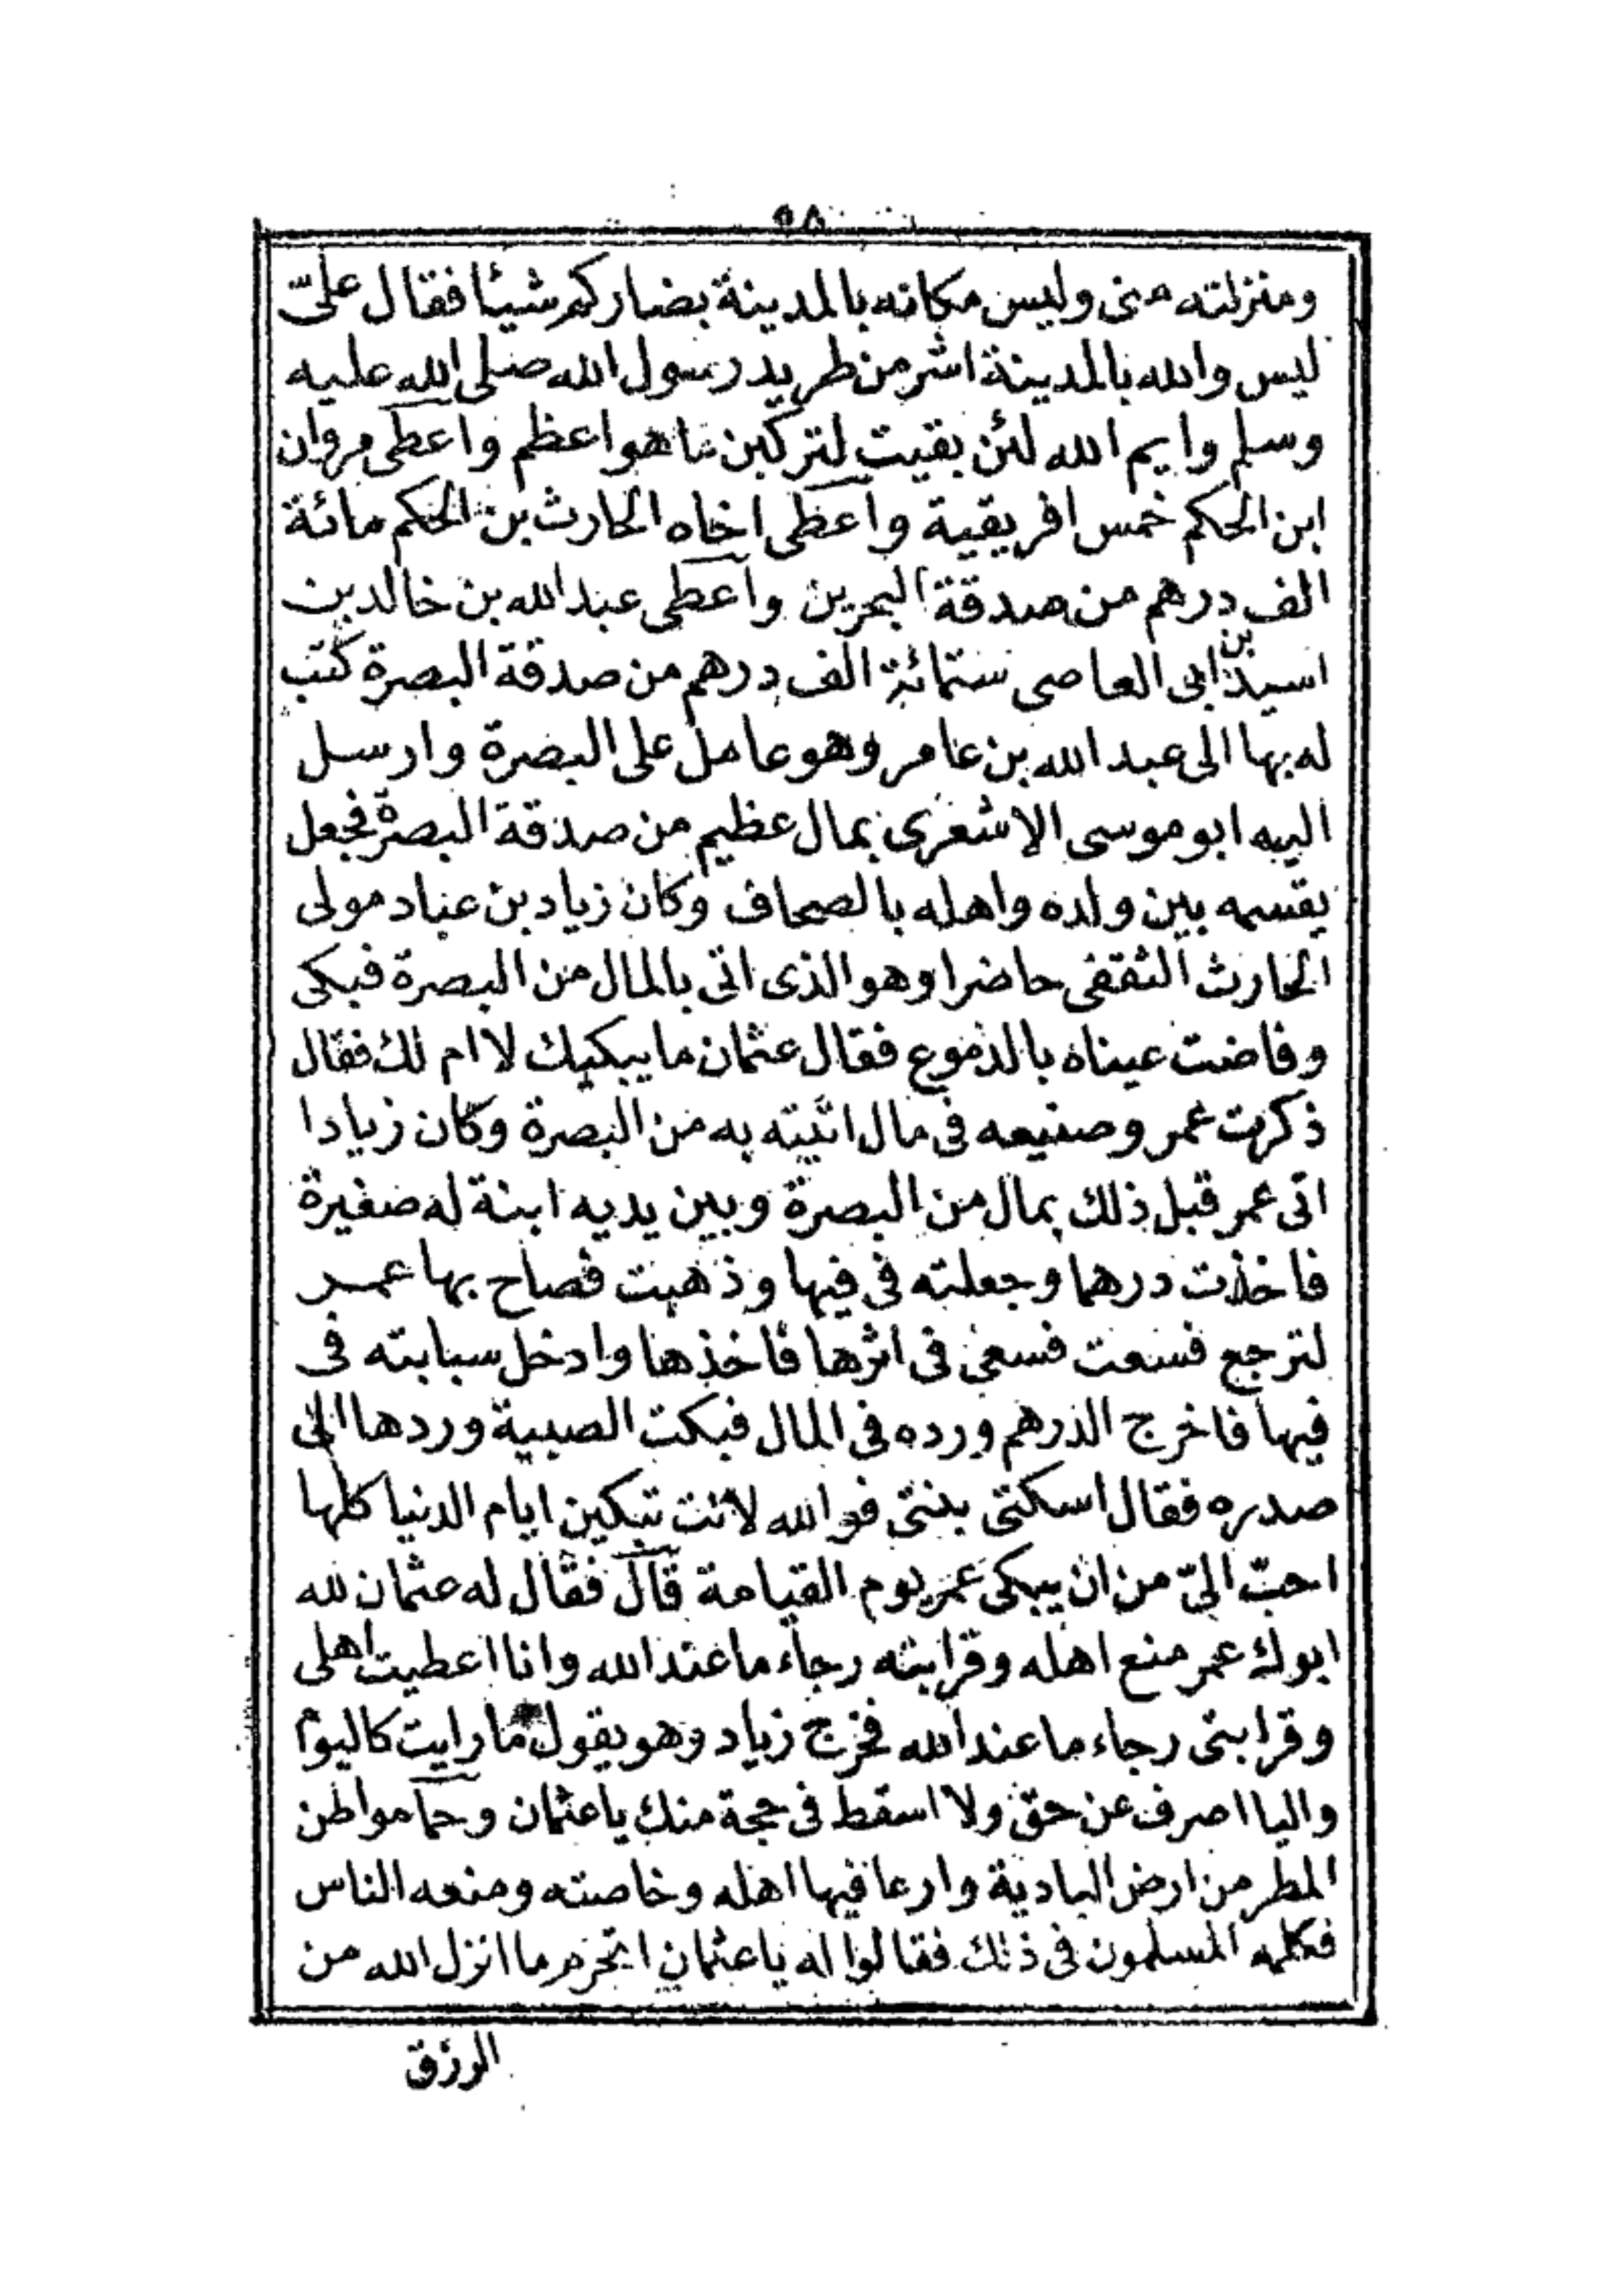 ٥٨
ومنزلته منى وليس مكانه بالمدينة بضاركم شيئا فقال علىّ
ليس والله بالمدينة اشر من طريد رسول الله صلى الله عليه
وسلم وايم الله لئن بقيت لتركبن ما هو اعظم واعطى مروان
ابن الحكم خمس افريقية واعطى اخاه الحارث بن الحكم مائة
الف درهم من صدقة البحرين واعطى عبد الله بن خالد بن
اسيد بن ابى العاصى ستمائة الف درهم من صدقة البصرة كتب
له بها الى عبد الله بن عامر وهو عامل على البصرة وارسل
اليه ابو موسى الاشعرى بمال عظيم من صدقة البصرة فجعل
يقسمه بين ولده واهله بالصحاف وكان زياد بن عباد مولى
الحارث الثقفى حاضرا وهو الذى اتى بالمال من البصرة فبكى
وفاضت عيناه بالدموع فقال عثمان ما يبكيك لا ام لك فقال
ذكرت عمر وصنيعه فى مال اتيته به من البصرة وكان زيادا
اتى عمر قبل ذلك بمال من البصرة وبين يديه ابنة له صغيرة
فاخذت درهما وجعلته فى فيها وذهبت فصاح بها عمر
لترجع فسعت فسعى فى اثرها فاخذها وادخل سبابته فى
فيها فاخرج الدرهم ورده فى المال فبكت الصبية وردها الى
صدره فقال اسكتى بنتى فوالله لانت تبكين ايام الدنيا كلها
احبّ الىّ من ان يبكى عمر يوم القيامة قال فقال له عثمان لله
ابوك عمر منع اهله وقرابته رجاء ما عند الله وانا اعطيت اهلى
وقرابتى رجاء ما عند الله فخرج زياد وهو يقول ما رايت كاليوم
واليا اصرف عن حق ولا اسقط فى حجة منك يا عثمان وحما مواطن
المطر من ارض البادية وارعا فيها اهله وخاصته ومنعه الناس
فكلمه المسلمون فى ذلك فقالوا له يا عثمان اتحرم ما انزل الله من
الرزق